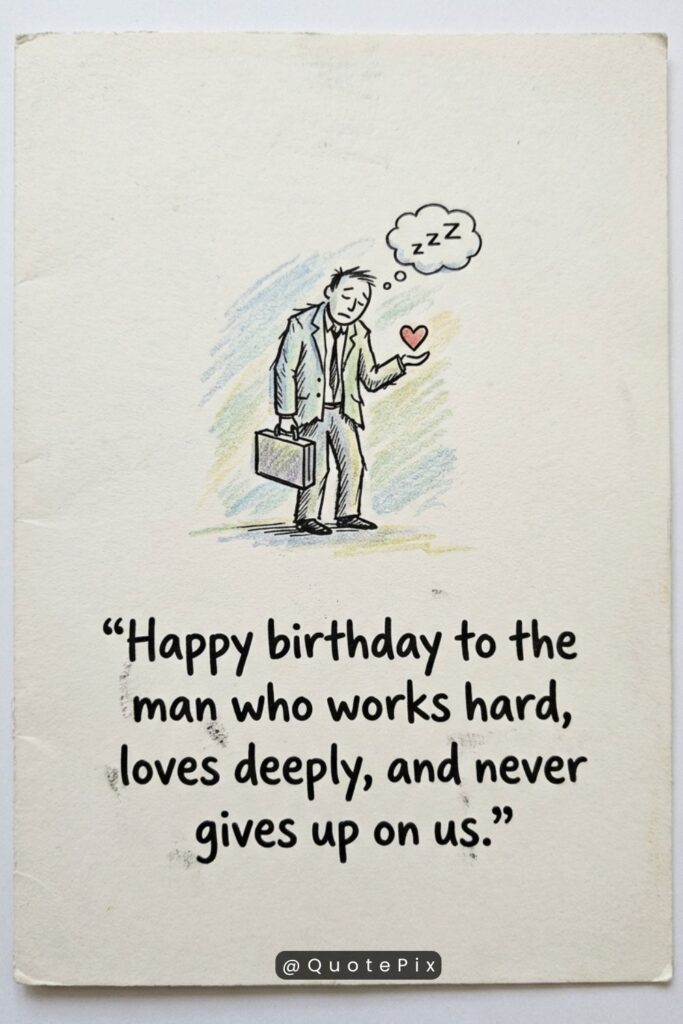 zzZ
“Happy birthday to the
man who works hard,
loves deeply, and never
gives up on us.”
@QuotePix